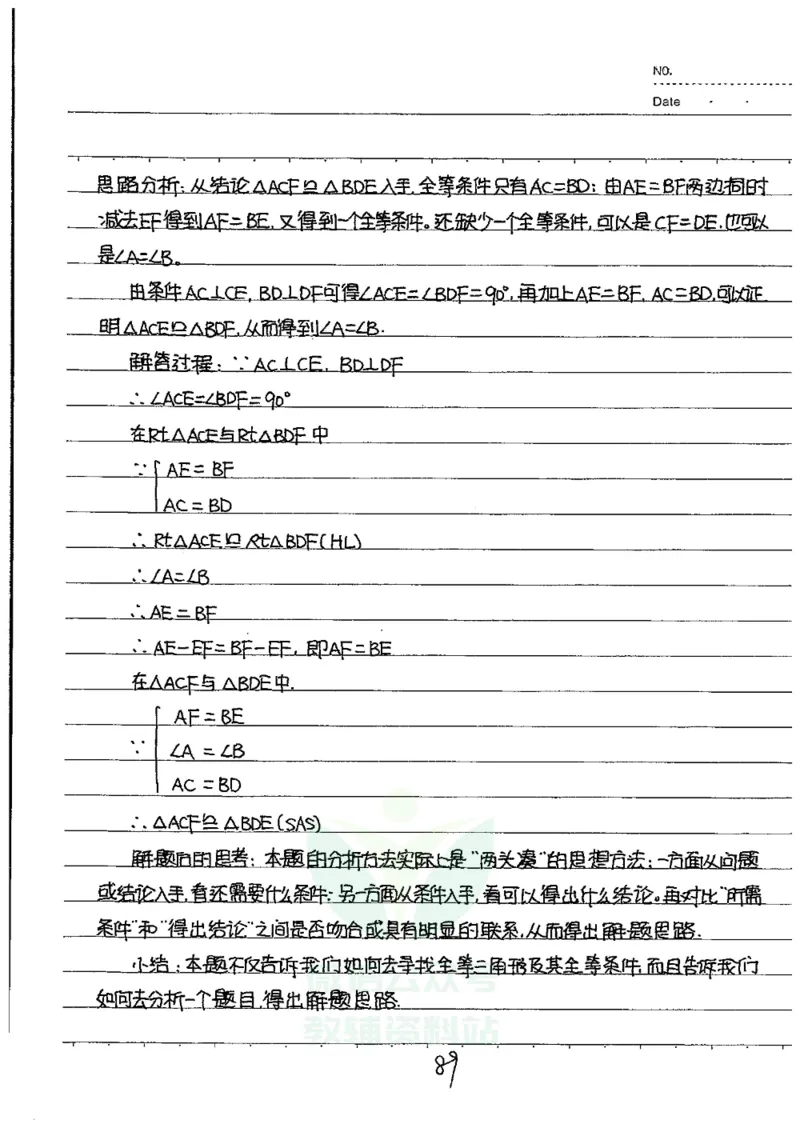 NO.
Date
思路分析：从结论△ACF≌△BDE入手，全等条件只有AC=BD；由AE=BF两边同时
减去EF得到AF=BE，又得到一个全等条件。还缺少一个全等条件，可以是CF=DE，也可以
是∠A=∠B。
由条件AC⊥CE，BD⊥DF可得∠ACE=∠BDF=90°，再加上AE=BF，AC=BD，可以证
明△ACE≌△BDF，从而得到∠A=∠B.
解答过程：∵AC⊥CE，BD⊥DF
∴∠ACE=∠BDF=90°
在Rt△ACE与Rt△BDF中
∵ AE=BF
AC=BD
∴Rt△ACE≌Rt△BDF(HL)
∴∠A=∠B
∴AE=BF
∴AE-EF=BF-EF，即AF=BE
在△ACF与△BDE中.
AF=BE
∵ ∠A=∠B
AC=BD
∴△ACF≌△BDE(SAS)
解题后的思考：本题的分析方法实际上是“两头凑”的思想方法：一方面从问题
或结论入手，看还需要什么条件；另一方面从条件入手，看可以得出什么结论。再对比“所需
条件”和“得出结论”之间是否吻合或具有明显的联系，从而得出解题思路.
小结：本题不仅告诉我们如何去寻找全等三角形及其全等条件，而且告诉我们
如何去分析一个题目，得出解题思路.
微信公众号
教辅资料站
89